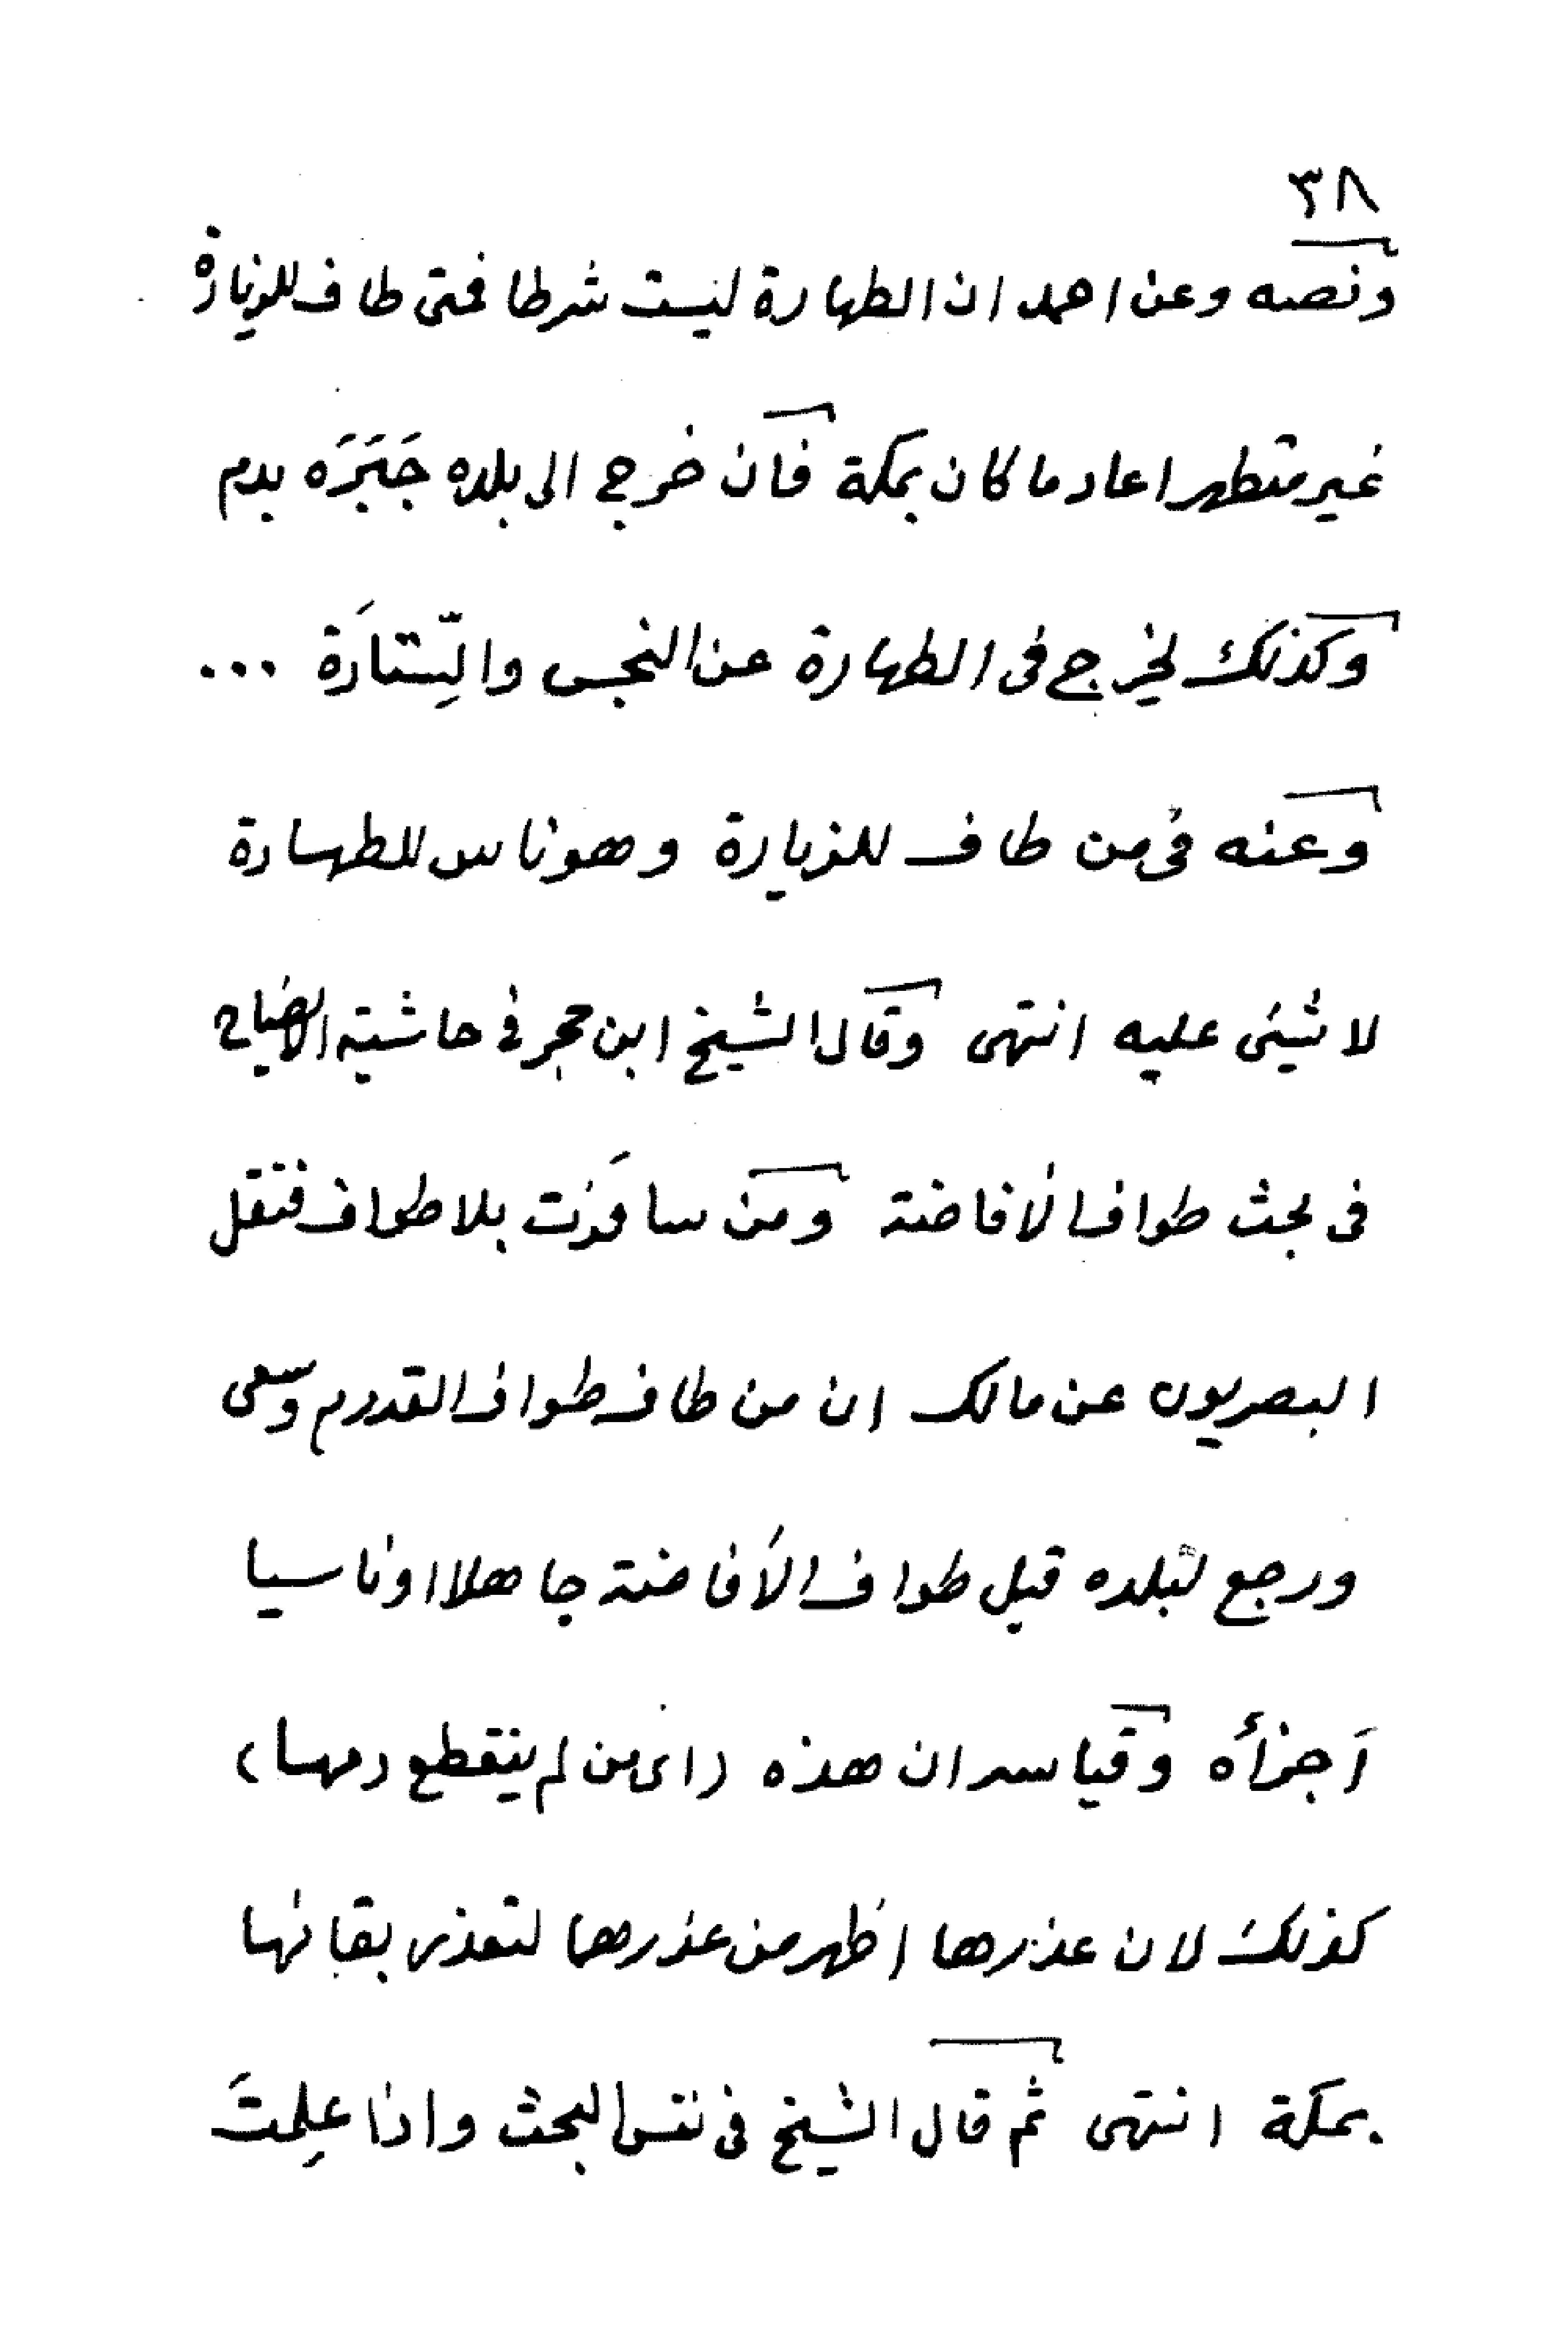 ٣٨
ونصه وعن احمد ان الطهارة ليست شرطا فمتى طاف للزيارة
غير متطهر اعاد ما كان بمكة فان خرج الى بلده جَبَرَه بدم
وكذلك يخرج فى الطهارة عن النجس والسِّتارَة ...
وعنه فى من طاف للزيارة وهو ناس للطهارة
لا شيئ عليه انتهى وقال الشيخ ابن حجر فى حاشية الايضاح
فى بحث طواف الافاضة ومن سافَرَت بلا طواف فنقل
البصريون عن مالك ان من طاف طواف القدوم وسعى
ورجع لبلده قبل طواف الاَفاضة جاهلا او ناسيا
اَجزأه وقياسه ان هذه (اى من لم ينقطع دمها)
كذلك لان عذرها اظهر من عذرهما لتعذر بقائها
بمكة انتهى ثم قال الشيخ فى نفس البحث واذا عِلمتَ